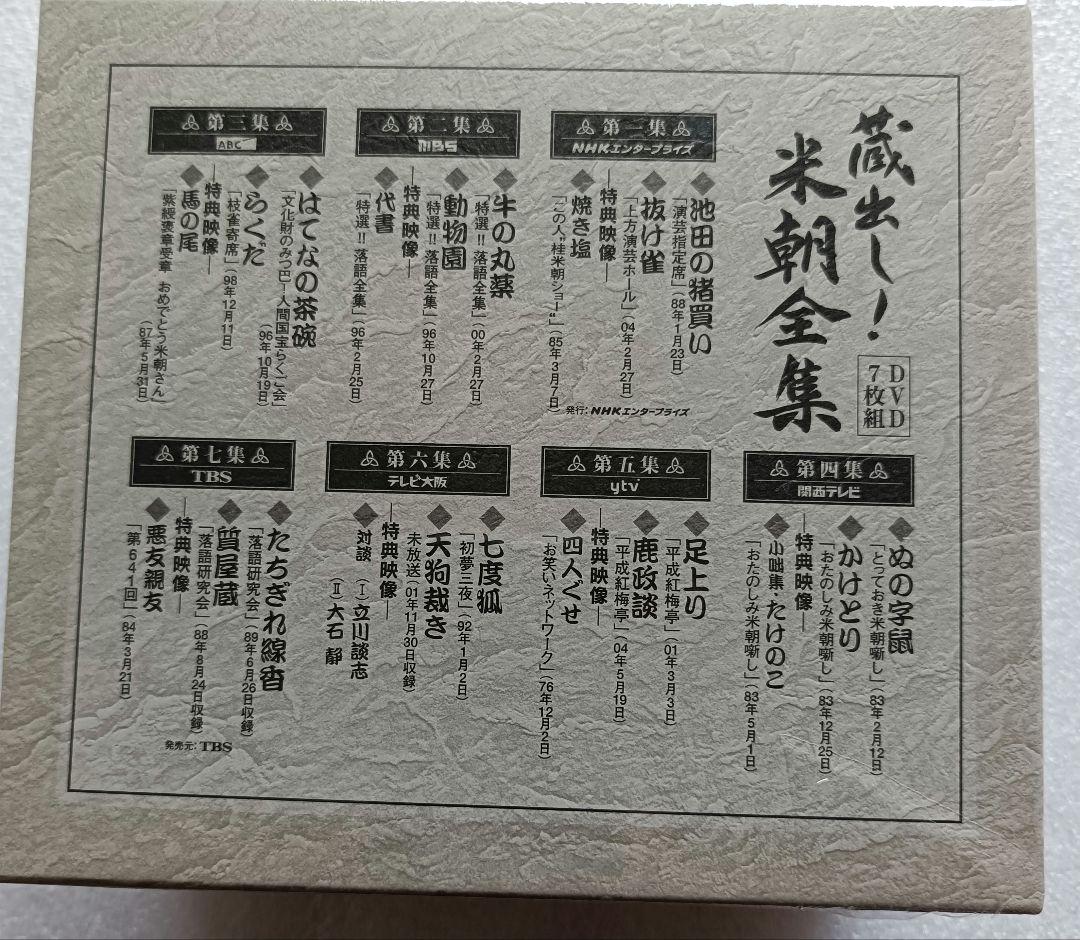 蔵出し！
米朝全集
DVD
7枚組
第一集
NHKエンタープライズ
池田の猪買い
「演芸指定席」（88年1月23日）
抜け雀
「上方演芸ホール」（04年2月27日）
特典映像
焼き塩
「この人“桂米朝ショー”」（85年3月7日）
発行：NHKエンタープライズ
第二集
MBS
牛の丸薬
「特選!!落語全集」（00年2月27日）
動物園
「特選!!落語全集」（96年10月27日）
特典映像
代書
「特選!!落語全集」（96年2月25日）
第三集
ABC
はてなの茶碗
「文化財のみつ巴ー人間国宝らくご会」
（96年10月19日）
らくだ
「枝雀寄席」（98年12月11日）
特典映像
馬の尾
「紫綬褒章受章 おめでとう米朝さん」
（87年5月31日）
第四集
関西テレビ
ぬの字鼠
「とっておき米朝噺し」（83年2月12日）
かけとり
「おたのしみ米朝噺し」（83年12月25日）
特典映像
小咄集・たけのこ
「おたのしみ米朝噺し」（83年5月1日）
第五集
ytv
足上り
「平成紅梅亭」（01年3月3日）
鹿政談
「平成紅梅亭」（04年5月19日）
特典映像
四人ぐせ
「お笑いネットワーク」（76年12月2日）
第六集
テレビ大阪
七度狐
「初夢三夜」（92年1月2日）
天狗裁き
未放送（01年11月30日収録）
特典映像
対談 （Ⅰ）立川談志
（Ⅱ）大石 静
第七集
TBS
たちぎれ線香
「落語研究会」（89年6月26日収録）
質屋蔵
「落語研究会」（88年8月24日収録）
特典映像
悪友親友
「第641回」（84年3月21日）
発売元：TBS